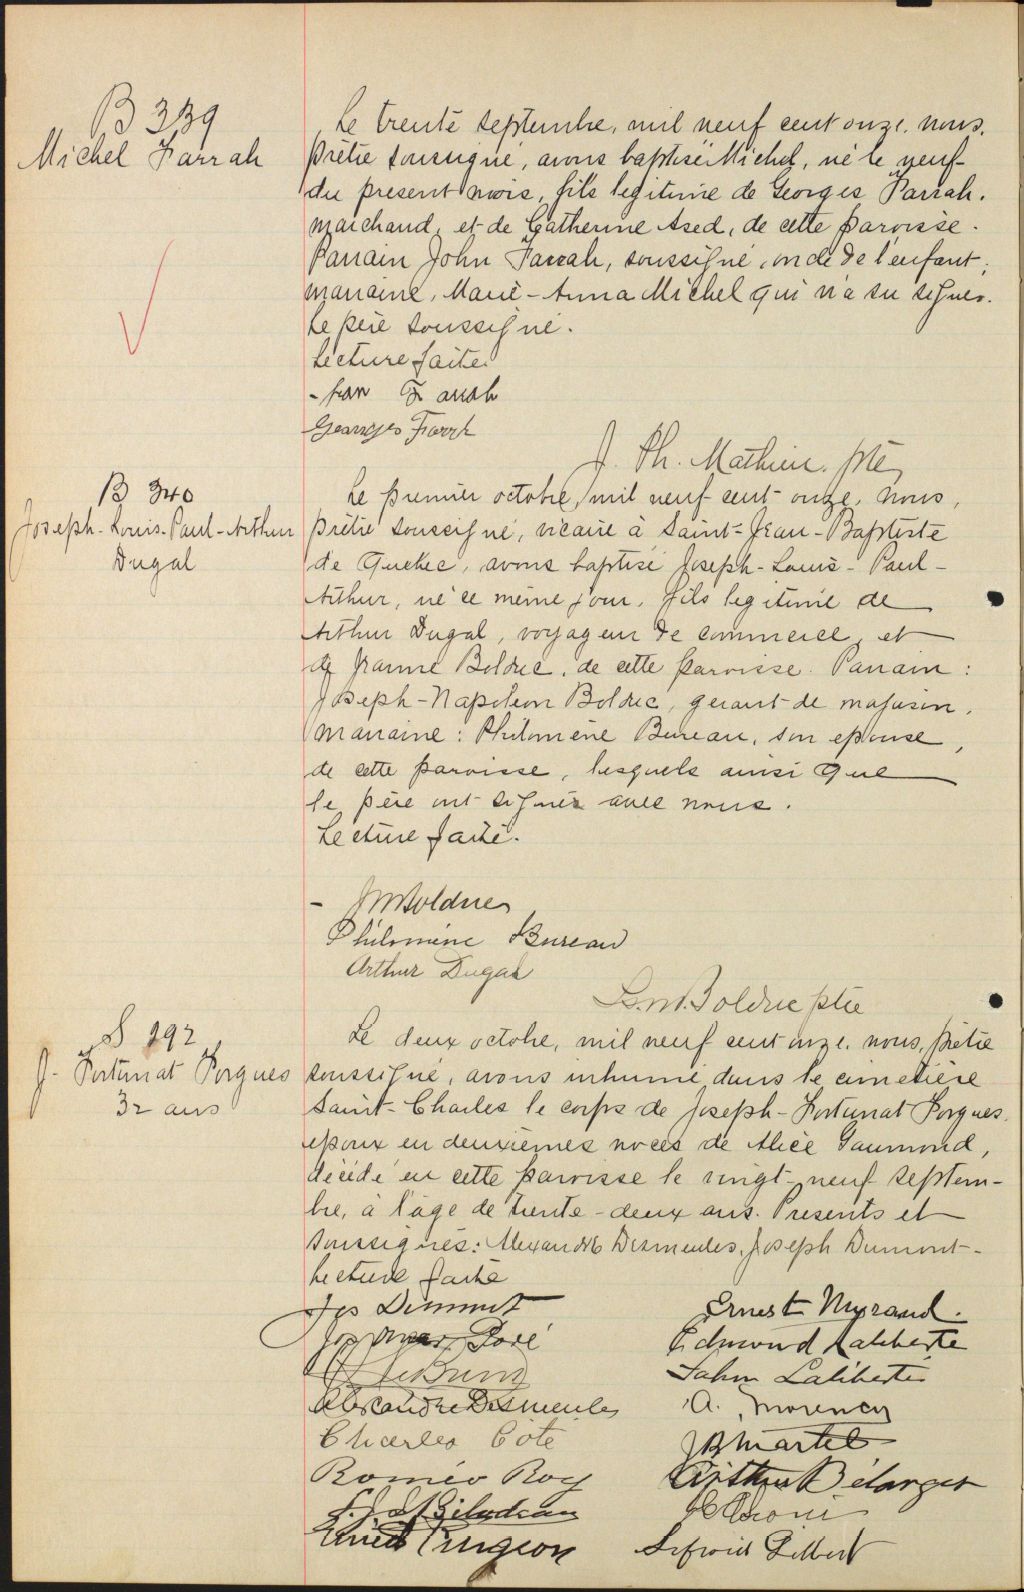 B 339
Michel Farrah
Le trente septembre, mil neuf cent onze, nous,
prêtre soussigné, avons baptisé Michel, né le neuf
du present mois, fils legitime de Georges Farrah,
marchand, et de Catherine Ased, de cette paroisse.
Parrain John Farrah, soussigné, oncle de l'enfant;
marraine, Marie-Anna Michel qui n'a su signer.
Le père soussigné.
Lecture faite.
Georges Farrh
J. Ph. Mathieu. ptre
B 340
Joseph-Louis-Paul-Arthur
Dugal
Le premier octobre, mil neuf cent onze, nous,
prêtre soussigné, vicaire à Saint-Jean-Baptiste
de Quebec, avons baptisé Joseph-Louis-Paul-
Arthur, né ce même jour, fils legitime de
Arthur Dugal, voyageur de commerce, et
de Jeanne Bolduc, de cette paroisse. Parrain:
Joseph-Napoleon Bolduc, gerant de magasin,
marraine: Philomène Bureau, son epouse,
de cette paroisse, lesquels ainsi que
le père ont signés avec nous.
Lecture faite.
JNBolduc
Philomène Bureau
Arthur Dugal
Bolduc ptre
S 192
J. Fortunat Forgues
32 ans
Le deux octobre, mil neuf cent onze, nous, prêtre
soussigné, avons inhumé dans le cimetière
Saint-Charles le corps de Joseph-Fortunat Forgues,
epoux en deuxièmes noces de Alice Gaumond,
décédé en cette paroisse le vingt-neuf septem-
bre, à l'âge de trente-deux ans. Presents et
soussignés: Alexandre Desmeules, Joseph Dumont-
Lecture faite
Jos Dumont
Ernest Myrand.
Edmond Laliberte
Laliberté
Alexandre Desmeules
A. Morency
Charles Coté
JB Martel
Roméo Roy
Arthur Bélanger
Bilodeau
Turgeon
Gilbert